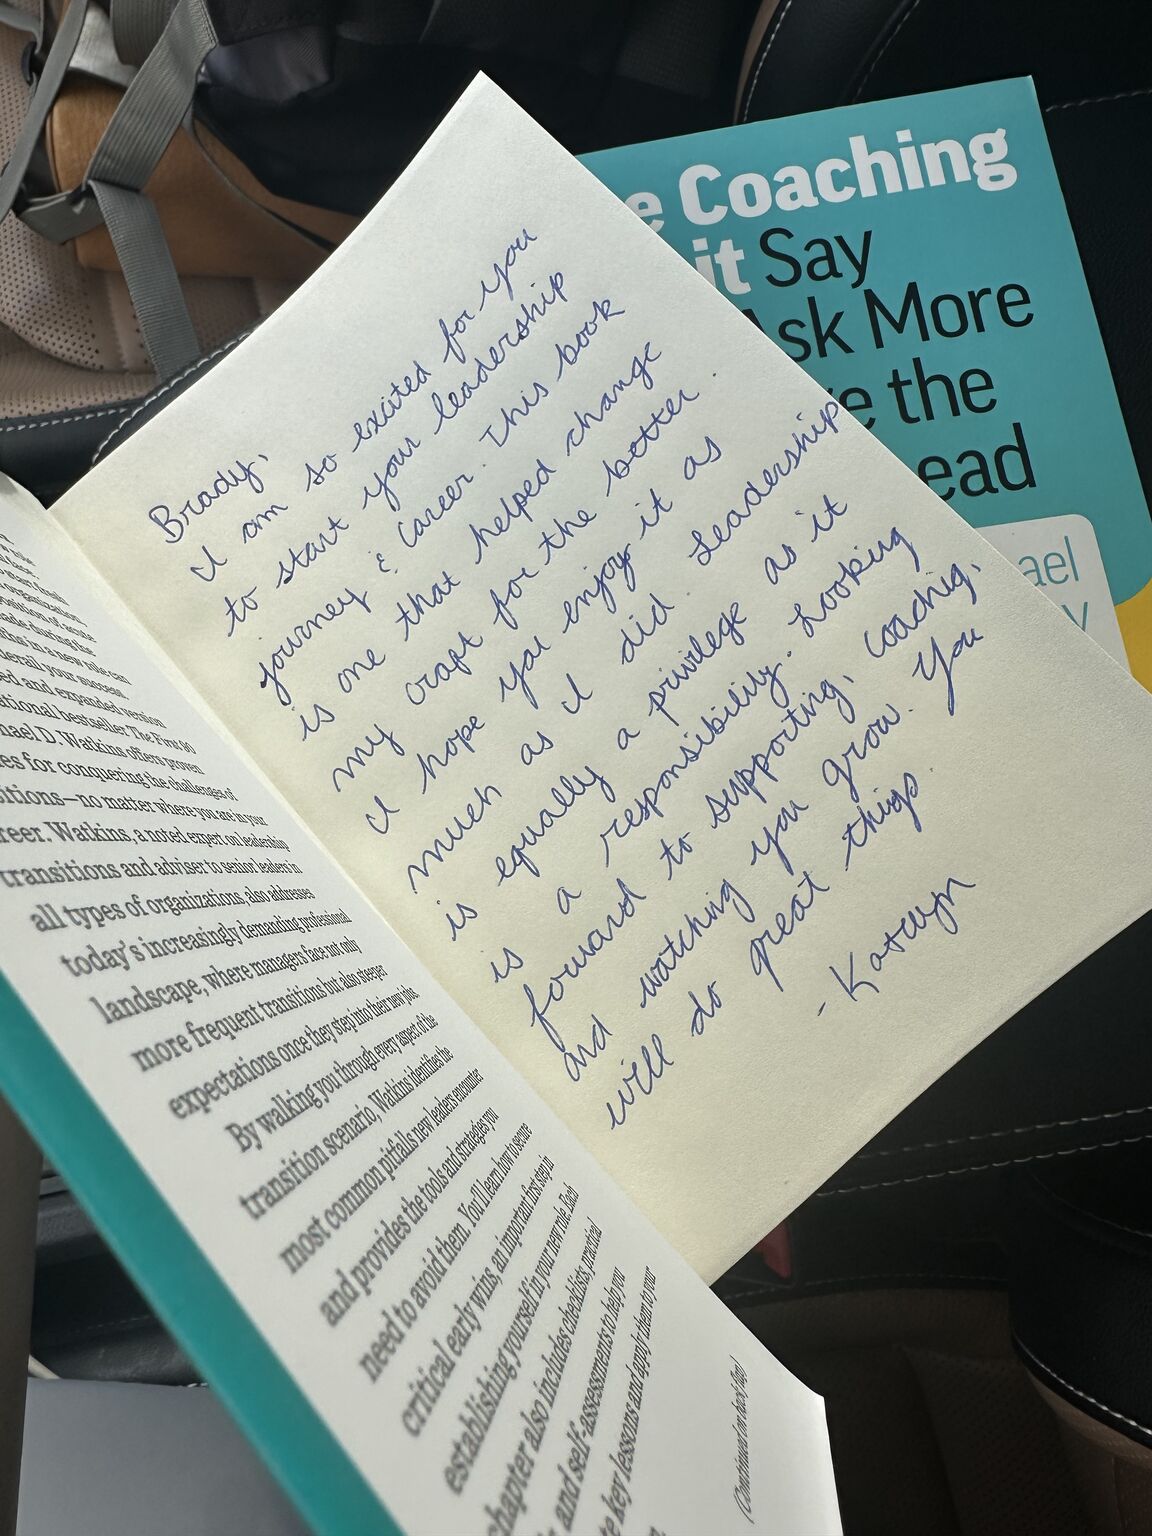 Brady,
I am so excited for you
to start your leadership
journey & career. This book
is one that helped change
my craft for the better.
I hope you enjoy it as
much as I did. Leadership
is equally a privilege as it
is a responsibility. Looking
forward to supporting, coaching,
and watching you grow. You
will do great things.
- Katelyn
e Coaching
it Say
Ask More
e the
ead
ael
y
organization
ade during the
in a new role can
derail your success.
ed and expanded version
ational bestseller The First 90
hael D. Watkins offers proven
es for conquering the challenges of
sitions—no matter where you are in your
reer. Watkins, a noted expert on leadership
transitions and adviser to senior leaders in
all types of organizations, also addresses
today's increasingly demanding professional
landscape, where managers face not only
more frequent transitions but also steeper
expectations once they step into their new jobs.
By walking you through every aspect of the
transition scenario, Watkins identifies the
most common pitfalls new leaders encounter
and provides the tools and strategies you
need to avoid them. You'll learn how to secure
critical early wins, an important first step in
establishing yourself in your new role. Each
chapter also includes checklists, practical
and self-assessments to help you
te key lessons and apply them to your
(Continued on back flap)